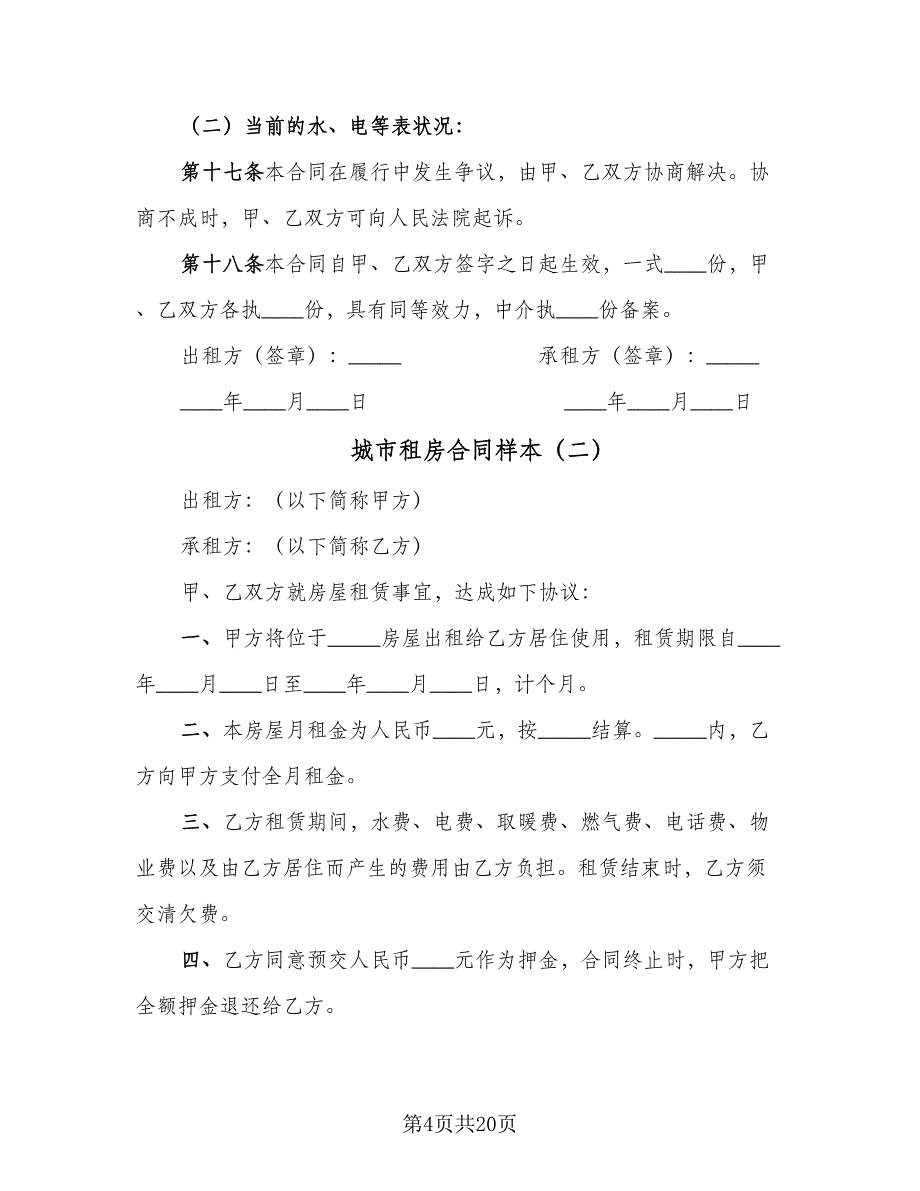 （二）当前的水、电等表状况：
第十七条本合同在履行中发生争议，由甲、乙双方协商解决。协
商不成时，甲、乙双方可向人民法院起诉。
第十八条本合同自甲、乙双方签字之日起生效，一式____份，甲
、乙双方各执____份，具有同等效力，中介执____份备案。
出租方（签章）：_____ 承租方（签章）：_____
____年____月____日 ____年____月____日
城市租房合同样本（二）
出租方：（以下简称甲方）
承租方：（以下简称乙方）
甲、乙双方就房屋租赁事宜，达成如下协议：
一、甲方将位于_____房屋出租给乙方居住使用，租赁期限自____
年____月____日至____年____月____日，计个月。
二、本房屋月租金为人民币____元，按_____结算。_____内，乙
方向甲方支付全月租金。
三、乙方租赁期间，水费、电费、取暖费、燃气费、电话费、物
业费以及由乙方居住而产生的费用由乙方负担。租赁结束时，乙方须
交清欠费。
四、乙方同意预交人民币____元作为押金，合同终止时，甲方把
全额押金退还给乙方。
第4页共20页